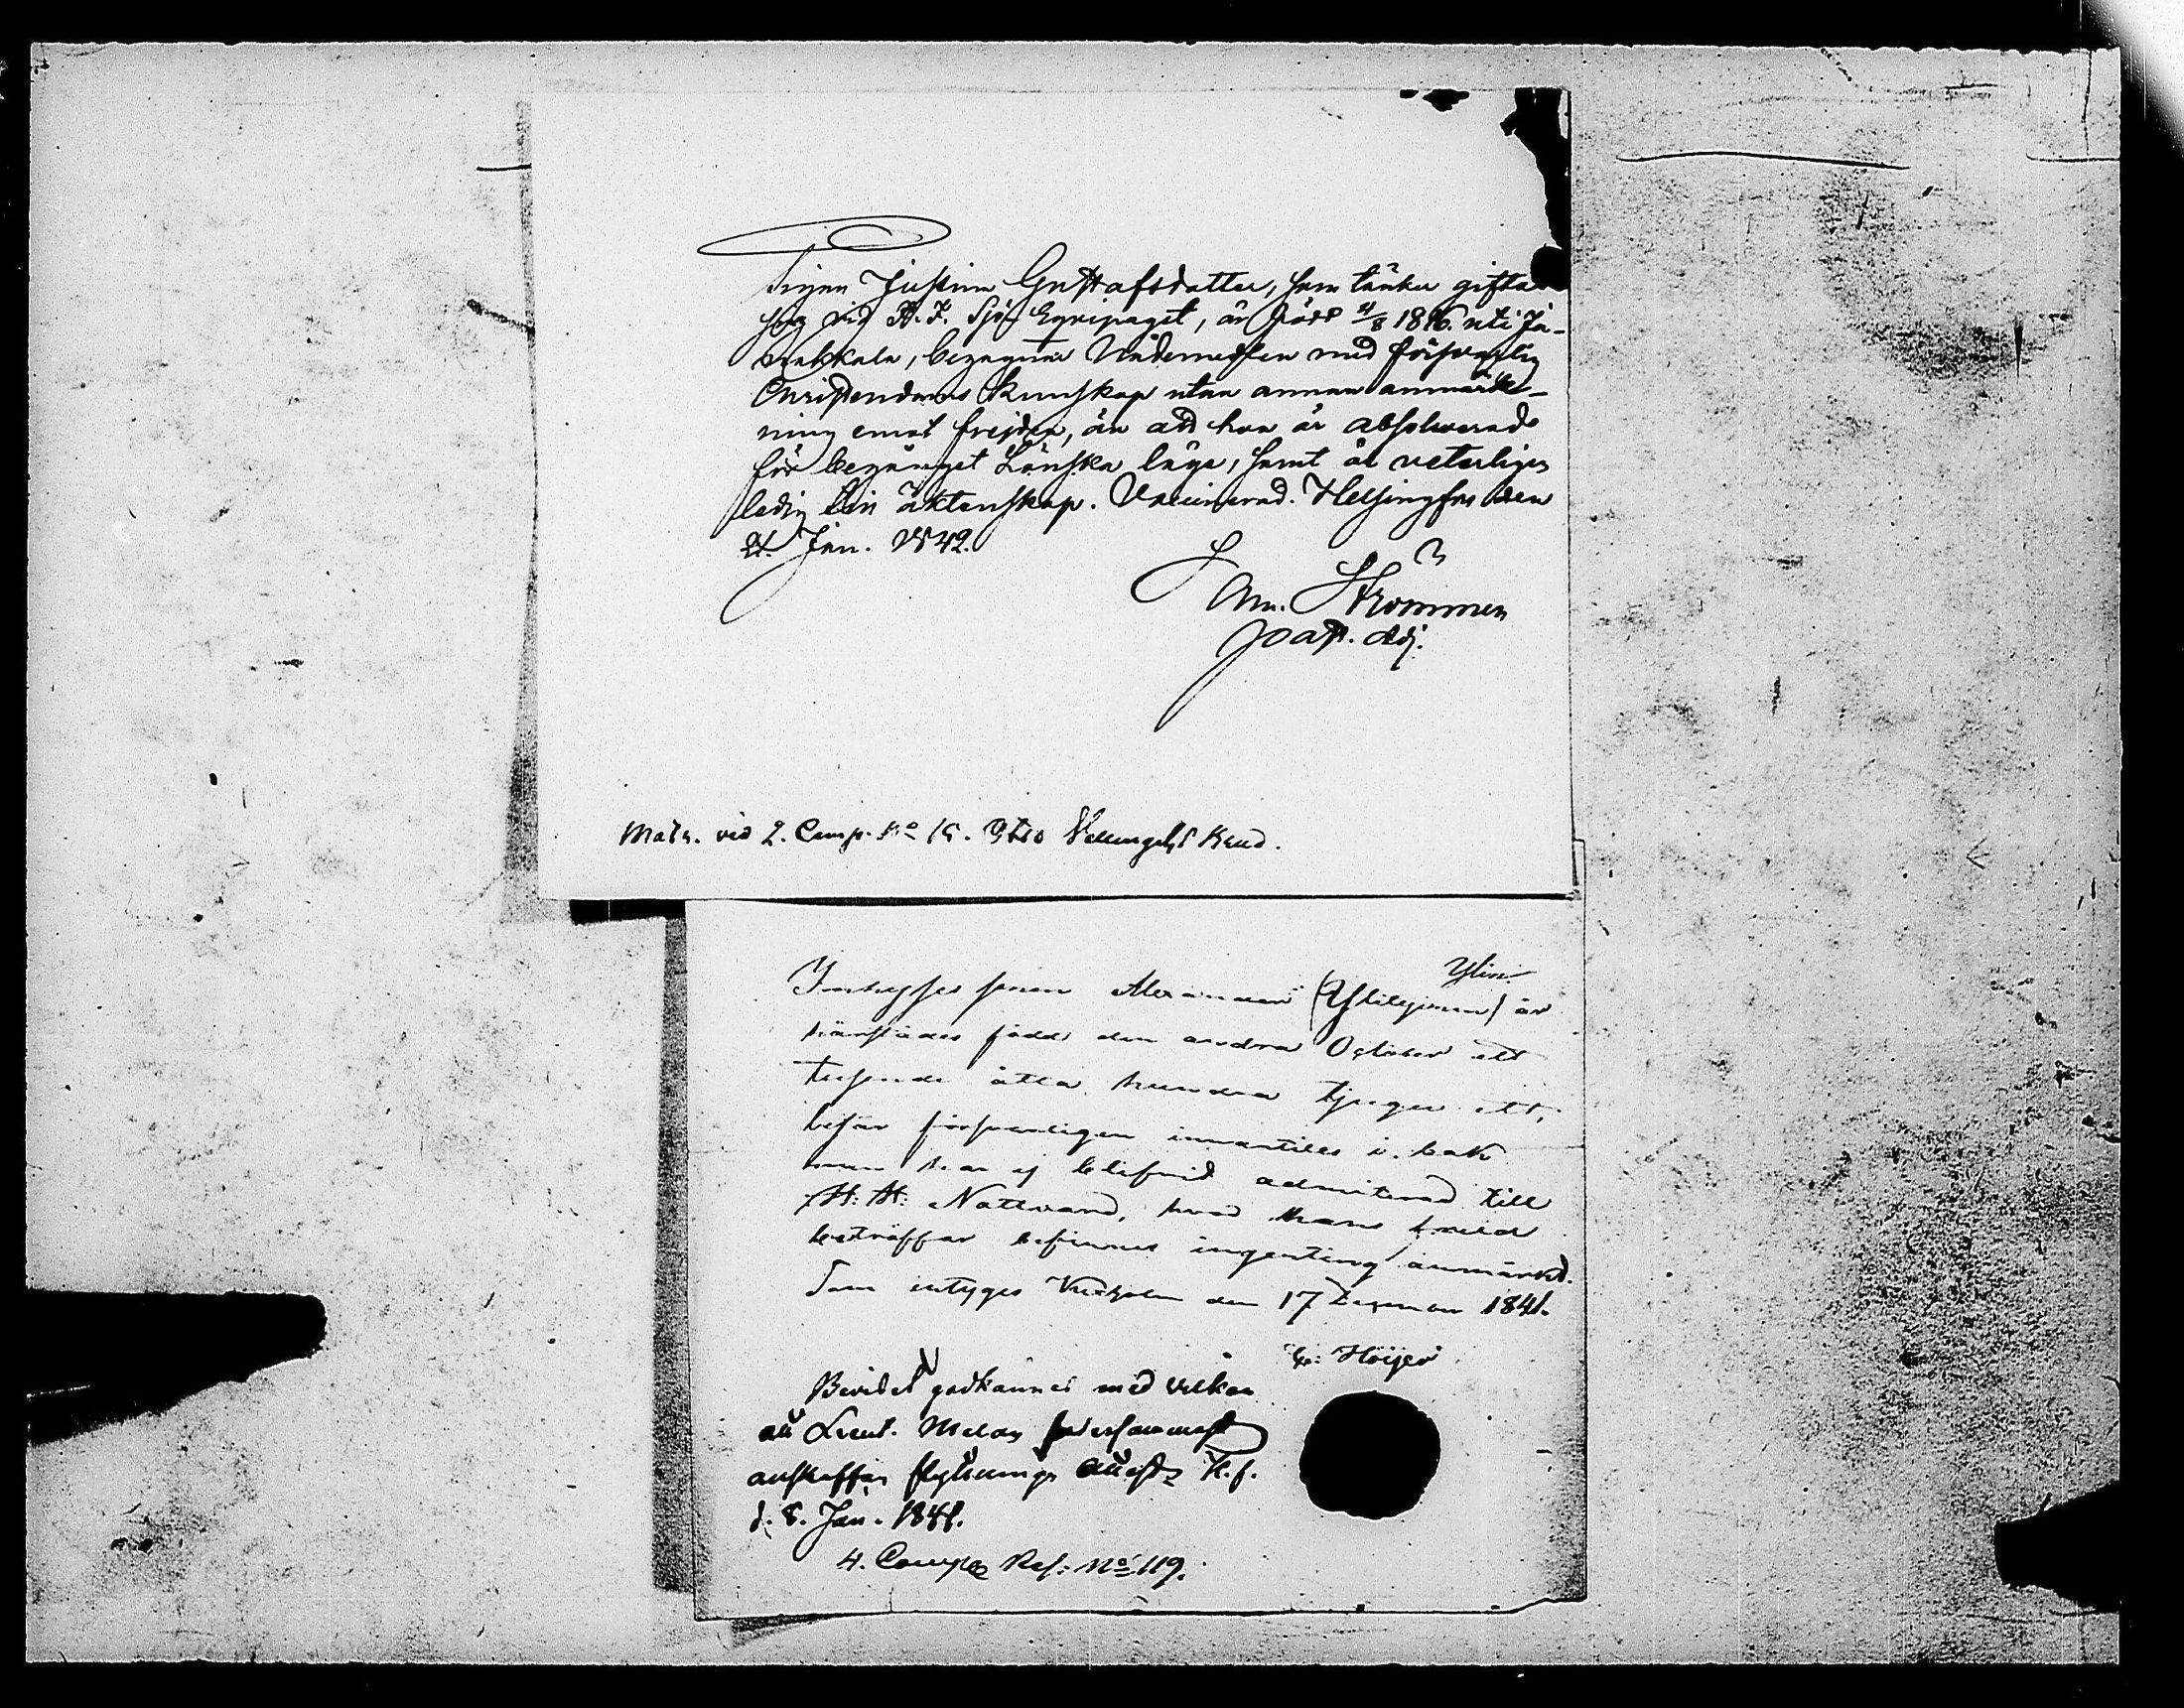 Pigan Justina Gustafsdotter, som tänker gifta
sig vid H. F. Sjö Eqvipaget, är född 4/8 1816 uti Ja-
nakkala, begagnar Nådemedlen med försvarlig
Christendoms kunskap utan annan anmärk-
ning emot frejden, än att hon är absolverad
för begånget Lönska läge, samt är veterligen
ledig till äktenskap. Vaccinerad. Helsingfors den
21. Jan. 1842.
Strömmer
past. adj.
Matr. vid 2. Comp. No 15. Otto
Ylin
Inhyses sonen Alexander (Ylilyjinen) är
härstädes född den andra October ett
tusende åtta hundra tjugu ett,
läser försvarligen innantill i bok
men har ej blifvit admitterad till
H: H: Nattvard, hvad hans frejd
beträffar befinnes ingenting anmärkt.
Som intyges den 17 December 1841.
Höijer
Beviset godkännes med vilkor
att Lieut. Melan
anskaffar flyttnings attest H.f.
d. 8. Jan. 1841.
4. Comp Ref: No 119.